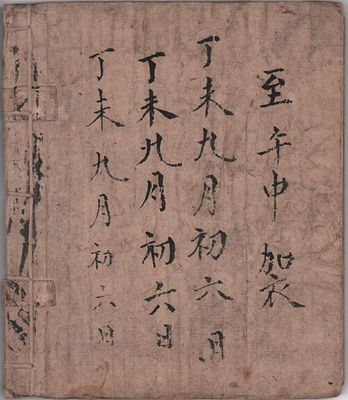 至午中袈
丁未九月初六月
丁未九月初六日
丁未九月初六日